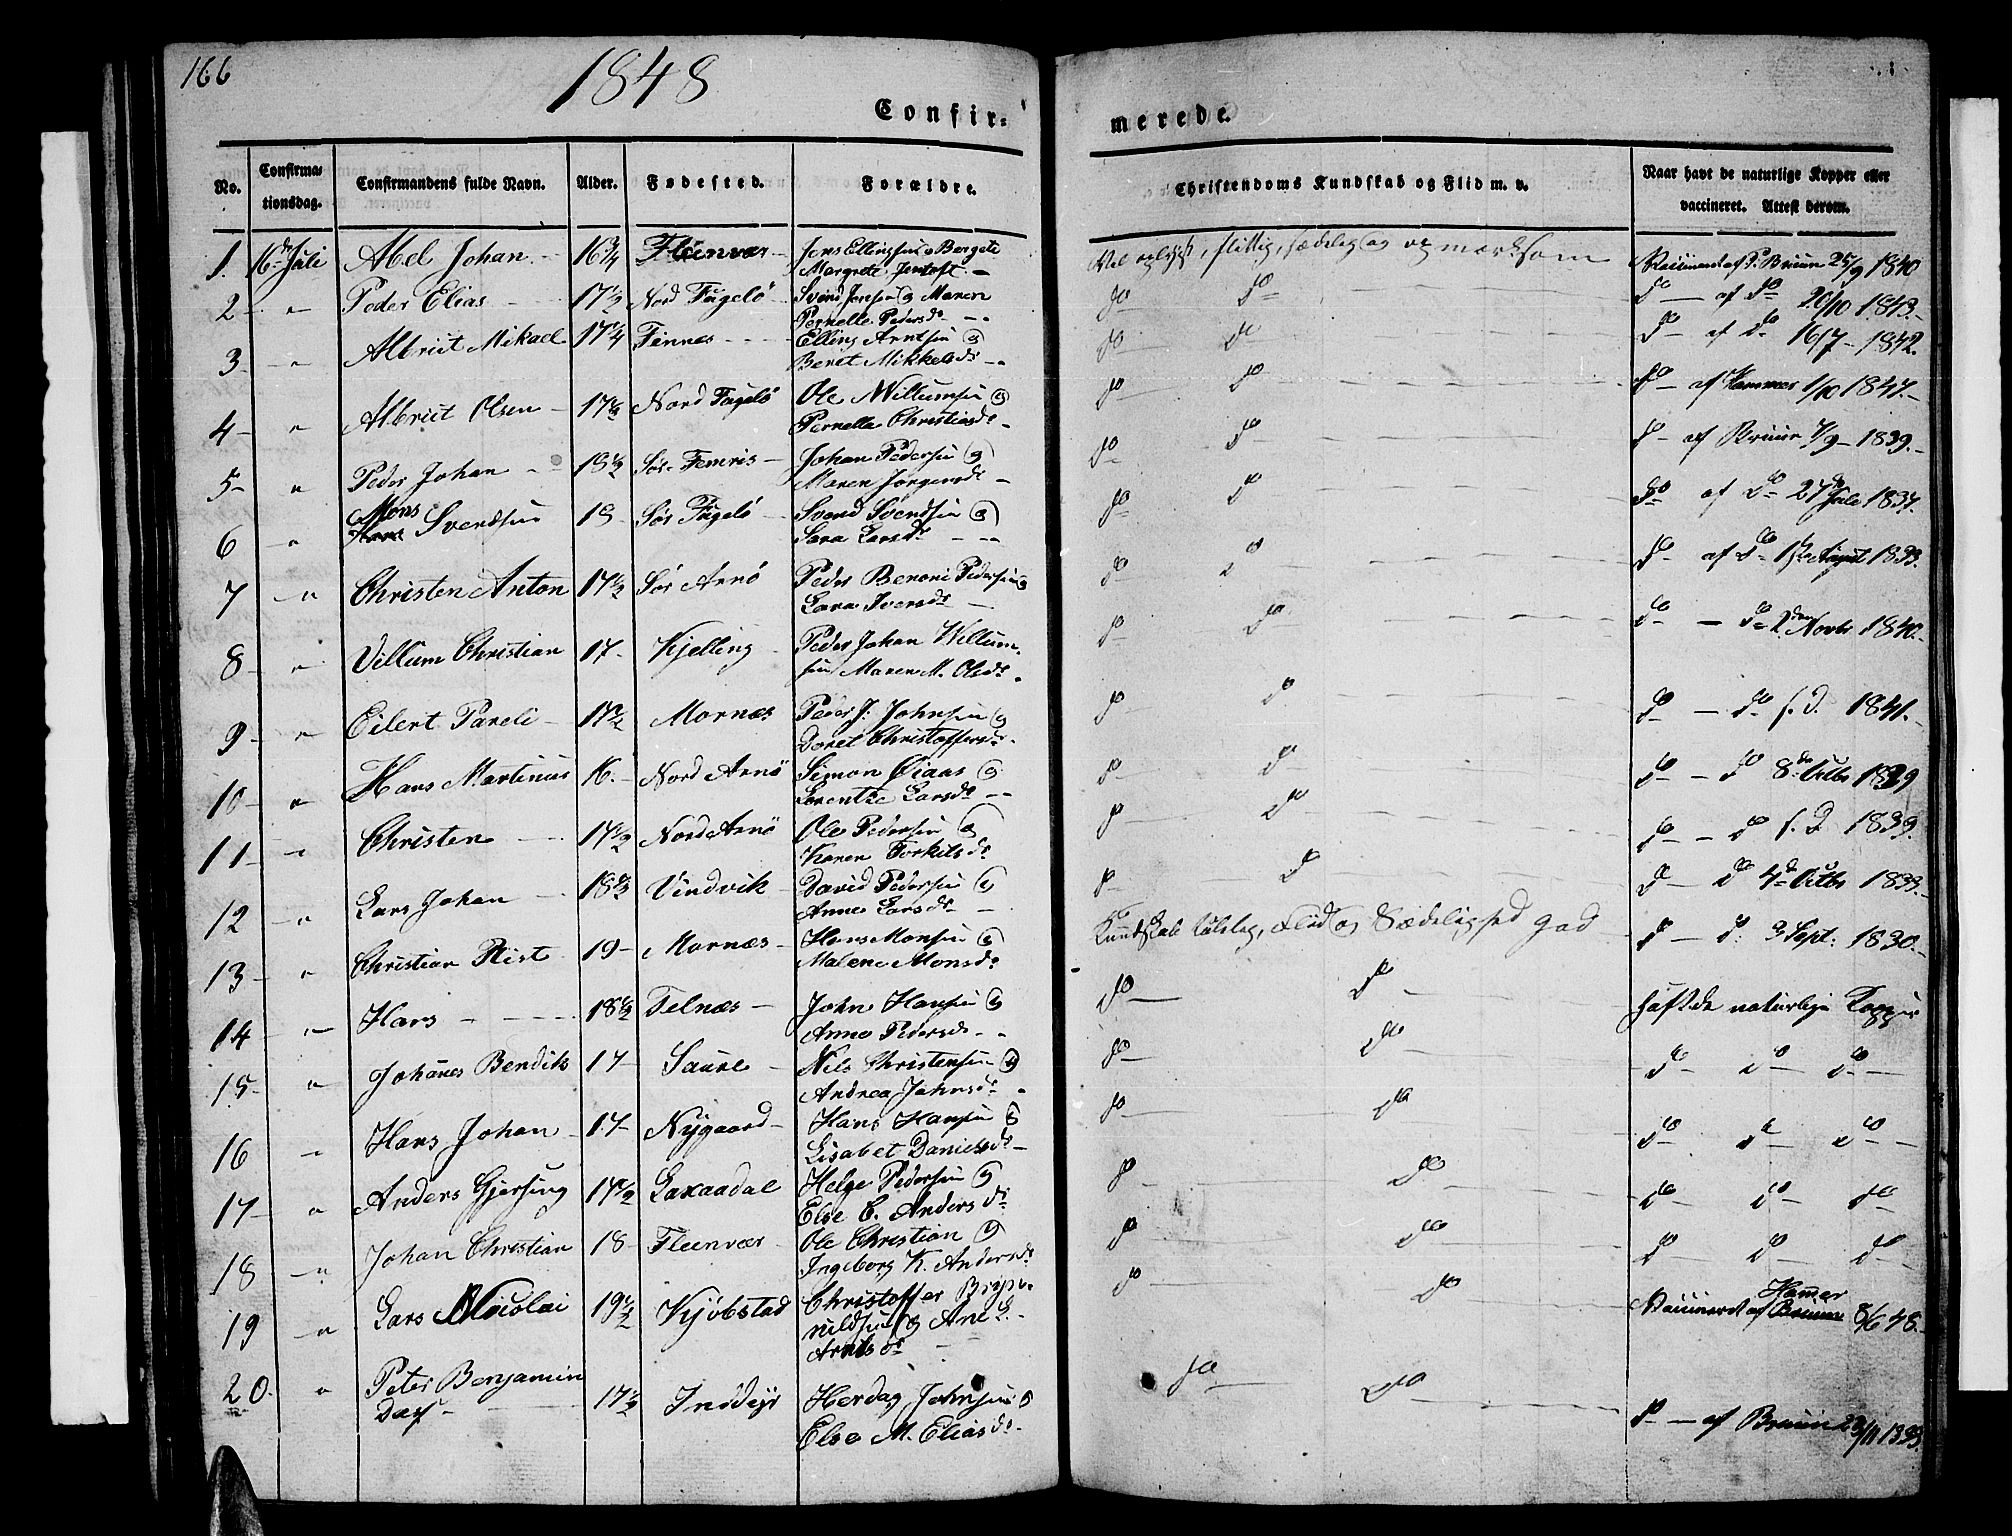 166
1848
Confir-
merede.
No.
Confirma-
tionsdag.
Confirmandens fulde Navn.
Alder.
Fødested.
Forældre.
Christendoms Kundskab og Flid m. v.
Naar havt de naturlige Kopper eller
vaccineret. Attest derom.
1. 16de Juli Abel Johan 16¾ Fleenvær Jens Ellingsen Bergete
Margrete Jentoft
Vel oplyst, flittig, sædelig og opmærksom
Vaccineret af P. Bruun 25/9 1840
2 " Peder Elias 17½ Nord Fugelö Svend Jensen og Maren
Pernelle Pedersdr
do do
do af do 20/10 1843
3 " Albrict Mikael 17¼ Finnes Elling Arntsen og
Beret Mikkelsdr
do do
do af do 16/7 1842.
4 " Albrict Olsen 17½ Nord Fugelö Ole Willumsen og
Pernella Christiansdr
do do
do af Hammer 1/10 1847.
5 " Peder Johan Sör Femris Johan Pedersen og
Maren Jörgensdr
do do
do af Bruun 7/9 1839.
6 " Mons
Svendsen 19 Sör Fugelö Svend Svendsen og
Sara Larsdr
do do
do af do 27de Juli 1837.
7 " Christen Anton 17½ Sör Arnö Peder Benoni Pedersen og
Lara Iversdr
do do
do af do August 1833.
8 " Villum Christian 17 Kjelling Peder Johan Willum-
sen Maren M. Olsdr
do do
do do 2den Novbr 1840.
9 " Eilert Pareli 17½ Mornæs Peder J. Johnsen og
Doret Christoffersdr
do do
do do s. D. 1841.
10 " Hans Martinus 16. Nord Arnö Simon Öiaas og
Lorentze Larsdr
do do
do do 8de Octbr 1839
11 " Christen 17½ Nord Arnö Ole Pedersen og
Karen Torkilsdr
do do
do do s. D 1839.
12 " Lars Johan 18½ Vindvik David Pedersen og
Anne Larsdr
do do
do do 4de Octbr 1833.
13 " Christian Rist 19 Mornæs Hans Monsen og
Malene Monsdr
Kundskab taalelig, Flid og Sædelighed god
do do 3 Sept: 1830.
14 " Hans 18½ Felnæs John Hansen og
Anne Pedersdr
do do
haft de naturlige Kopper
15 " Johanes Bendik 17 Saure Nils Christensen og
Andrea Johnsdr
do do
do do do
16 " Hans Johan 17 Nygaard Hans Hansen og
Lisabet Danielsdr
do do
do do do
17 " Anders Gjersing 17½ Laxaadal Helge Pedersen og
Else E. Andersdr
do do
do do do
18 " Johan Christian 18 Fleenvær Ole Christian og
Ingeborg K. Andersdr
do do
do do do
19 " Lars Nicolai 19½ Kjöbstad Christoffer Bryn-
nildsen og Ane L.
Arntsdr
do do
Hamer
Vaccineret af Bruun 8/6 48.
20. " Peter Benjamin
Dass 17½ Inödyr Herdag Johnsen og
Else M. Eliasdr
do do
do af Bruun 23/11 1833.